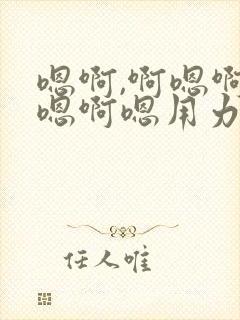 嗯啊,啊嗯啊
嗯啊嗯用力
任人唯